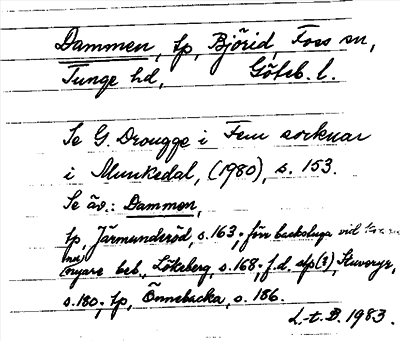 Dammen, tp, Björid, Foss sn,
Tunge hd, Göteb. l.
Se G. Drougge i Fem socknar
i Munkedal, (1980), s. 153.
Se äv.: Dammen,
tp, Järmunderöd, s. 163; förr backstuga vid
nu
nyare beb., Lökeberg, s. 168; f.d. slp(?), Stuveryr,
s. 180; tp, Önnebacka, s. 186.
L.t.D. 1983.